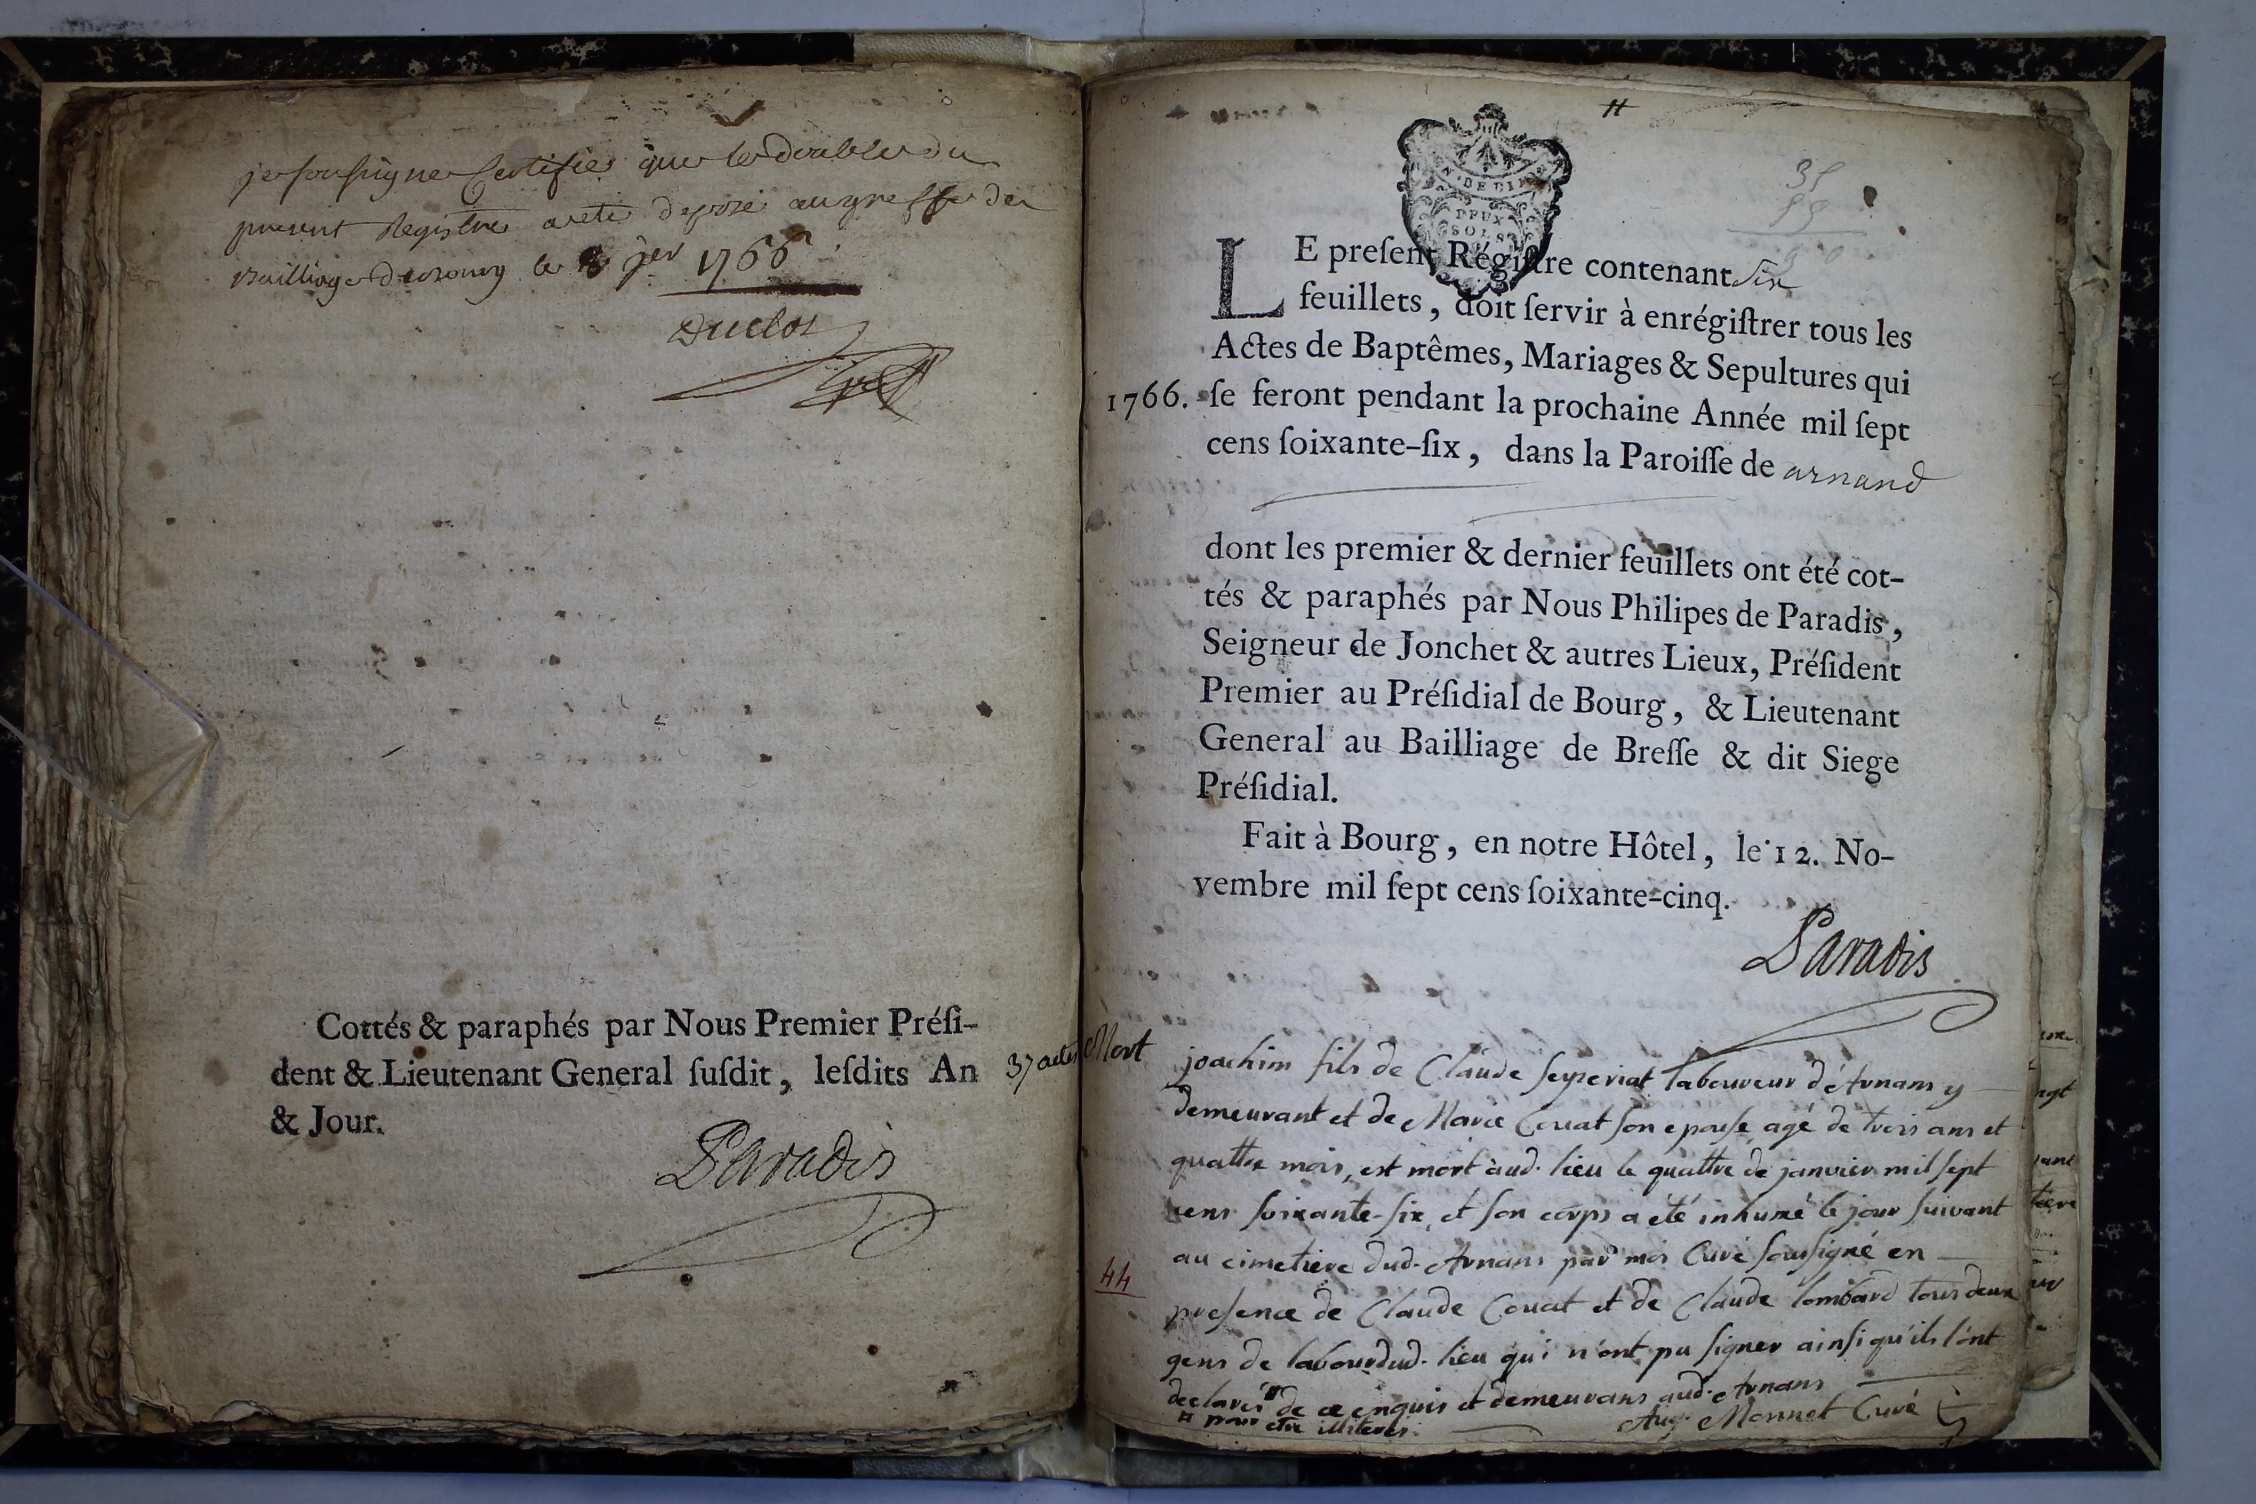 je soussigne Certifie que le double du
present Registre a eté deposé au greffe du
Bailliage de Bourg le 8 jer 1766
Duclos
Cottés & paraphés par Nous Premier Préſi-
dent & Lieutenant General ſuſdit, leſdits An
& Jour.
Paradis
GEN. DE DIJON
DEUX
SOLS
35
55
90
LE preſent Régiſtre contenant Six
feuillets, doit ſervir à enrégiſtrer tous les
Actes de Baptêmes, Mariages & Sepultures qui
1766. ſe feront pendant la prochaine Année mil ſept
cens ſoixante-ſix, dans la Paroiſſe de arnand
dont les premier & dernier feuillets ont été cot-
tés & paraphés par Nous Philipes de Paradis,
Seigneur de Jonchet & autres Lieux, Préſident
Premier au Préſidial de Bourg, & Lieutenant
General au Bailliage de Breſſe & dit Siege
Préſidial.
Fait à Bourg, en notre Hôtel, le 12. No-
vembre mil ſept cens ſoixante-cinq.
Paradis
37 actes
Mort
joachim fils de Claude Seyzeriat laboureur d'Arnans y
demeurant et de Marie Couat son epouse agé de trois ans et
quattre mois, est mort aud. lieu le quattre de janvier mil sept
cens soixante-six, et son corps a eté inhumé le jour suivant
au cimetiere dud. Arnans par moi Curé soussigné en
44
presence de Claude Couat et de Claude lombard tous deux
gens de labour dud. lieu qui n'ont pu signer ainsi qu'ils l'ont
declaré ¤ de ce enquis et demeurans aud. Arnans
¤ pour etre illiterés.
Aug. Monnet Curé